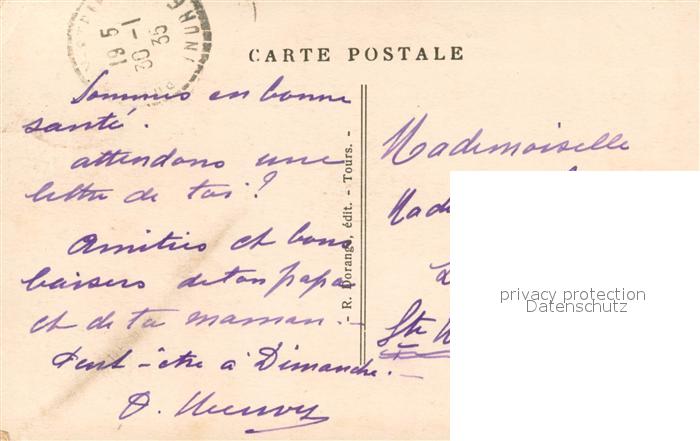 CARTE POSTALE
19 5
30 -1
35
Sommes en bonne
santé.
attendons une
lettre de toi?
Amitiés et bons
baisers de ton papa
et de ta maman.-
Peut-être à Dimanche.-
- R. Dorange, édit. - Tours. -
Mademoiselle
Ste
privacy protection
Datenschutz